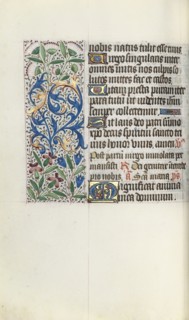 nobis natus tulit esse tuus
Virgo singularis inter
omnes mitis nos culpis so
lutos mites fac et castos
Vitam presta puram iter
para tutum ut videntes ihm
semper collectemur
Sit laus deo patri summo
xpo decus spiritui sancto
unus
Post partum virgo inviolata per
mansisti Dei genitrix intercede
pro nobis
Magnificat anima
mea dominum